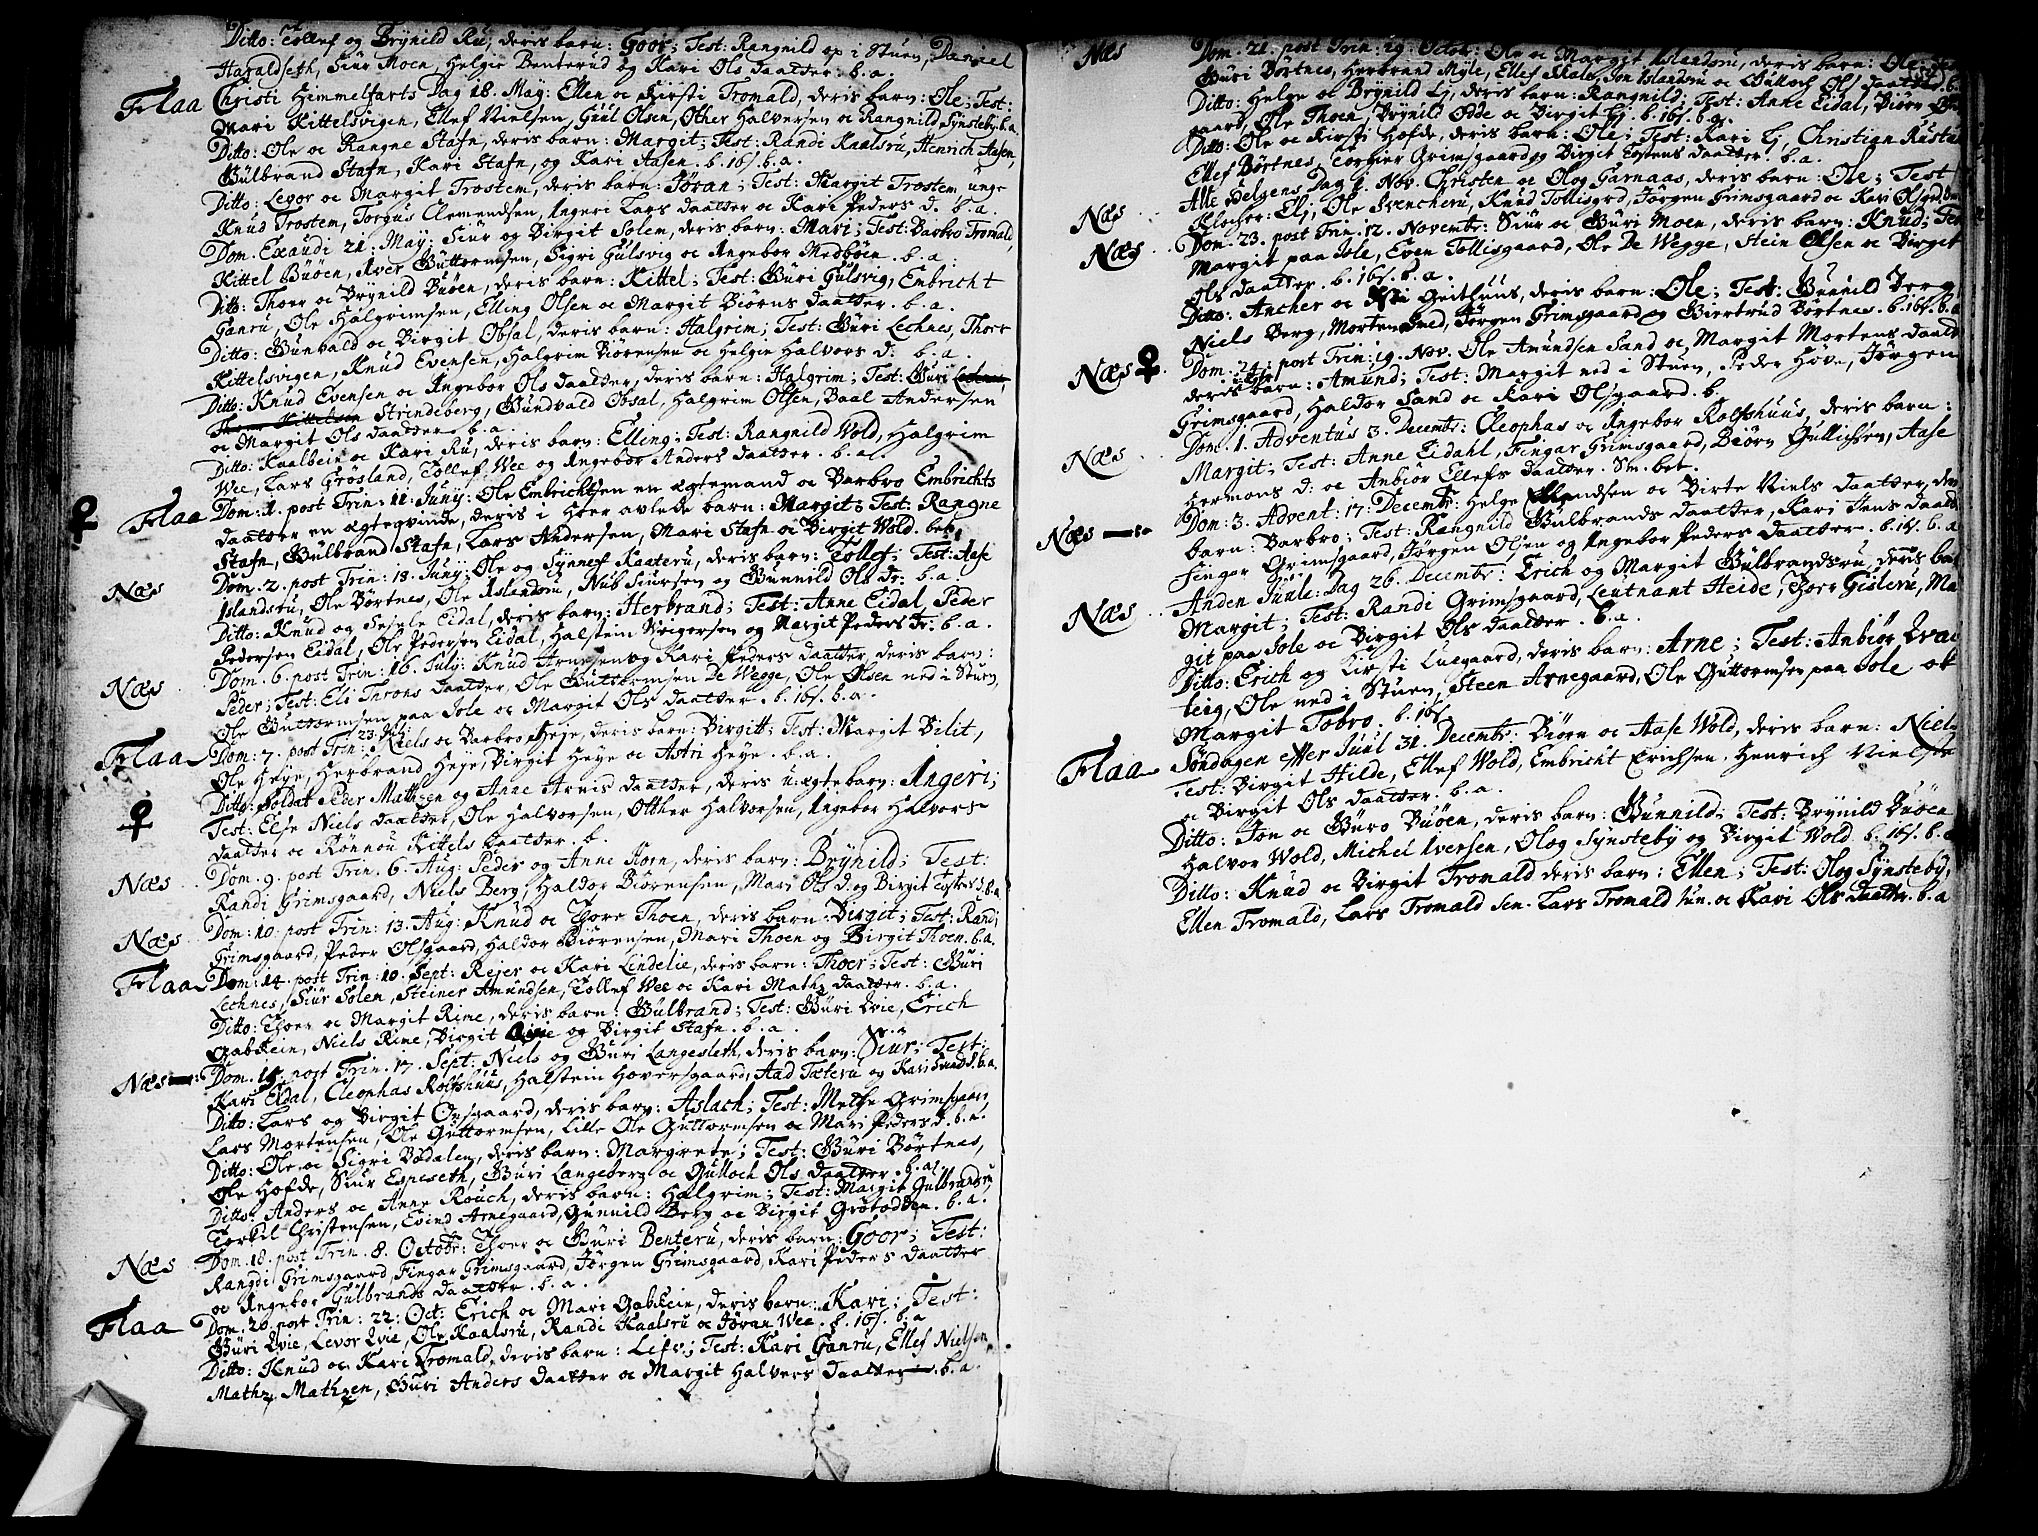 Ditto: Tollef og Brynild Ru, deris barn: Goor; Test: Rangnild op i Stuen, Daniel
Haraldseth, Siur Moen, Helgie Benterud og Kari Ols daatter. b. a.
Flaa Christi Himmelfarts Dag 18. May: Ellen oc Kirsti Tromald, deris barn: Ole; Test:
Mari Kittelsvigen, Ellef Nielsen, Guul Olsen, Other Halversen oc Rangnild Synsteby. b. a.
Ditto: Ole oc Rangne Stafn, deris barn: Margit; Test: Randi Kaalsru, Henrich Aasen,
Gulbrand Stafn, Kari Stafn, og Kari Aasen. b. 16s. b. a.
Ditto: Legor oc Margit Trostem, deris barn: Jøran; Test: Margit Trostem unge
Knud Trostem, Torgus Clemendsen, Angeri Lars daatter oc Kari Peders d. b. a.
Dom. Exaudi 21. May: Siur og Birgit Solem, deris barn: Mari; Test: Barbro Tromald,
Kittel Buøen, Aver Guttormsen, Sigri Gulsvig oc Angebor Medbøen. b. a.
Ditto: Thoer oc Brynild Buøen, deris barn: Kittel; Test: Guri Gulsvig, Embricht
Ganru, Ole Halgrimsen, Elling Olsen oc Margit Biørns daatter. b. a.
Ditto: Gunvald oc Birgit Obsal, deris barn: Halgrim; Test: Guri Lechnes, Thoer
Kittelsvigen, Knud Evensen, Halgrim Biørensen oc Helgie Halvors d: b. a.
Ditto: Knud Evensen oc Angebor Ols daatter, deris barn: Halgrim; Test: Guri Lechnes,
Thoer Kittelsen Strindeberg, Gundvald Obsal, Halgrim Olsen, Baal Andersen
oc Margit Ols daatter. b. a.
Ditto: Kaalbein oc Kari Ru, deris barn: Elling; Test: Rangnild Wold, Halgrim
Wee, Lars Grøsland, Tollef Wee og Angebor Anders daatter. b. a.
♀ Flaa Dom: 1. post Trin: 11. Juny: Ole Embrichtsen en egtemand oc Barbro Embrichts
daatter en egteqvinde, deris i hoer avlede barn: Margit; Test: Rangne
Stafn, Gulbrand Stafn, Lars Andersen, Mari Stafn oc Birgit Wold. bet.
Næs Dom. 2. post Trin: 18. Juny: Ole og Synnef Kaateru, deris barn: Tollef; Test: Aase
Islandsru, Ole Børtnes, Ole Aslandsru, Nub Siursen og Gunnild Ols dr: b. a.
Ditto: Knud og Sesele Eidal, deris barn: Herbrand; Test: Anne Eidal, Peder
Pedersen Eidal, Ole Pedersen Eidal, Halstein Reigersen og Margit Peders dr. b. a.
Næs Dom. 6. post Trin: 16. July: Knud Arnesen og Kari Peders daatter, deris barn:
Peder; Test: Eli Throns daatter, Ole Guttormsen De Wegge, Ole Olsen ned i Stuen,
Ole Guttormsen paa Jole oc Margit Ols daatter. b. 16s. b. a.
23. Juli:
Flaa Dom: 7. post Trin: Niels oc Barbro Heje, deris barn: Birgitt; Test: Margit Bilit,
Ole Heye, Herbrand Heye, Birgit Heye oc Astri Heye. b. a.
♀ Ditto: Soldat Peder Mathzen og Anne Arnis daatter, deris u-egte barn: Angeri;
Test: Else Niels daatter, Ole Halvorsen, Olther Halvorsen, Angebor Halvors
daatter oc Rønnou Kittels daatter. b.
Næs Dom. 9. post Trin. 6. Aug: Peder og Anne Horn, deris barn: Brynild; Test:
Randi Grimsgaard, Niels Berg, Haldor Biørensen, Mari Ols d. og Birgit Tosters d. b. a.
Næs Dom: 10. post Trin: 13. Aug: Knud oc Thore Thoen, deris barn: Birgit; Test: Randi
Grimsgaard, Peder Olsgaard, Haldor Biørensen, Mari Thoen og Birgit Thoen. b. a.
Flaa Dom: 14. post Trin: 10. Sept: Rejer oc Kari Lindelie, deris barn: Thoer; Test: Guri
Lechnes, Siur Solem, Steiner Amundsen, Tollef Wee oc Kari Mathz daatter. b. a.
Ditto: Thoer oc Margit Rime, deris barn: Gulbrand; Test: Guri Qvie, Erich
Gabstein, Niels Rime, Birgit Qvie og Birgit Stafn. b. a.
Næs Dom. 15. post Trin. 17. Sept: Niels og Guri Langesleth, deris barn: Siur; Test:
Kari Eidal, Cleophas Rolfshuus, Halstein Hoversgaard, Aad Tæteru og Kari Svends d. b. a.
Ditto: Lars og Birgit Onsgaard, deris barn: Aslach; Test: Mette Grimsgaard,
Lars Mortensen, Ole Guttormsen, Lille Ole Guttormsen oc Mari Peders d. b. a.
Ditto: Ole oc Sigri Bødalen, deris barn: Margrete; Test: Guri Børtnes,
Ole Hofde, Siur Espeseth, Guri Langeberg oc Gulloch Ols daatter. b. a.
Ditto: Anders oc Anne Rouch, deris barn: Halgrim; Test: Margit Gulbrandsru,
Torkil Christensen, Evind Arnegaard, Gunnild Berg oc Birgit Grøtodden. b. a.
Næs Dom. 18. post Trin. 8. Octobr: Thoer oc Guri Benteru, deris barn: Goor; Test:
Rangdi Grimsgaard, Fingar Grimsgaard, Jørgen Grimsgaard, Kari Peders daatter
oc Angebor Gulbrands daatter. b. a.
Flaa Dom: 20. post Trin: 22: Oct: Erich oc Mari Gabstein, deris barn: Kari; Test:
Guri Qvie, Levor Qvie, Ole Kaalsru, Randi Kaalsru oc Jøran Wee. b. 16s. b. a
Ditto: Knud oc Kari Tromald, deris barn: Lifv; Test: Kari Ganru, Ellef Nielsen,
Mathz Mathzen, Guri Anders daatter oc Margit Halvers daatter. b. a.
Næs Dom. 21. post Trin: 29. Octobr: Ole oc Margit Aslandsru, deris barn: Ole;
Guri Børtnes, Herbrand Myle, Ellef Skals, Jon Islandsru oc Gulloch Ols daatter. b.
Ditto: Helge oc Brynild Ej, deris barn: Rangnild; Test: Anne Eidal, Biørn
gaard, Ole Thoen, Brynild Odde oc Birgit Ej. b. 16s. b. a.
Ditto: Ole oc Kirsti Hofde, deris barn: Ole; Test: Kari Ej, Christian Rustad
Ellef Børtnes, Torbiør Grimsgaard og Birgit Tostens daatter. b. a.
Næs Alle Helgens Dag 1. Nov. Christen oc Olog Garnaas, deris barn: Ole; Test
Klocher: Elj, Ole Svencheru, Knud Tollisgrd, Jørgen Grimsgaard oc Kari Olsgrd.
Næs Dom. 23. post Trin. 12. Novembr: Siur oc Guri Moen, deris barn: Knud; Test
Margit paa Jole, Even Tollisgaard, Ole De Wegge, Stein Olsen oc Birgit
Ols daatter. b. 16s. b. a.
Ditto: Ancher oc Geithuus, deris barn: Ole; Test: Gunnild Berg,
Niels Berg, Morten Smed, Jørgen Grimsgaard og Giertrud Børtnes. b. 16s. b. a
Næs ♀ Dom. 24: post Trin: 19. Nov. Ole Amundsen Sand oc Margit Mortens daatter
deris barn: Amund; Test: Margit ned i Stuen, Peder Hove, Jørgen
Grimsgaard, Haldor Sand oc Kari Olsgaard. b.
Næs Dom. 1. Adventus 3. Decembr: Cleophas oc Angebor Rolfshuus, deris barn:
Margit; Test: Anne Eidahl, Fingar Grimsgaard, Biørn Gullichsen, Aase
Hermons d: oc Anbiør Ellefs daatter. Sm. bet.
Næs Dom: 3. Advent: 17: Decembr: Helge Ellendsen oc Birte Niels daatter, deris
barn: Barbro; Test: Rangnild Gulbrands daatter, Kari Jens daatter
Fingar Grimsgaard, Jørgen Olsen og Angebor Peders daatter. b. 16s. b. a.
Næs Anden Juule-Dag 26. Decembr: Erich og Margit Gulbrandsru, deris barn
Margit; Test: Randi Grimsgaard, Leutnant Heide, Thore Gisleru, Mar
git paa Jole oc Birgit Ols daatter. b. a.
Ditto: Erich og Kirsti Luegaard, deris barn: Arne; Test: Anbiør Qvan
berg, Ole ned i Stuen, Steen Arnegaard, Ole Guttormsen paa Jole oc
Margit Tobro. b. 16s
Flaa Søndagen efter Juul 31. Decembr: Biørn oc Aase Wold, deris barn: Niels
Test: Birgit Hilde, Ellef Wold, Embricht Erichsen, Henrich Nielsen
oc Birgit Ols daatter. b. a.
Ditto: Jon oc Guro Buøen, deris barn: Gunnild; Test: Brynild Buøen
Halvor Wold, Michel Iversen, Olog Synsteby og Birgit Wold. b. 16s. b. a
Ditto: Knud oc Birgit Tromald deris barn: Ellen; Test: Olog Synsteby,
Ellen Tromald, Lars Tromald sen. Lars Tromald jun. oc Kari Ols daatter. b. a